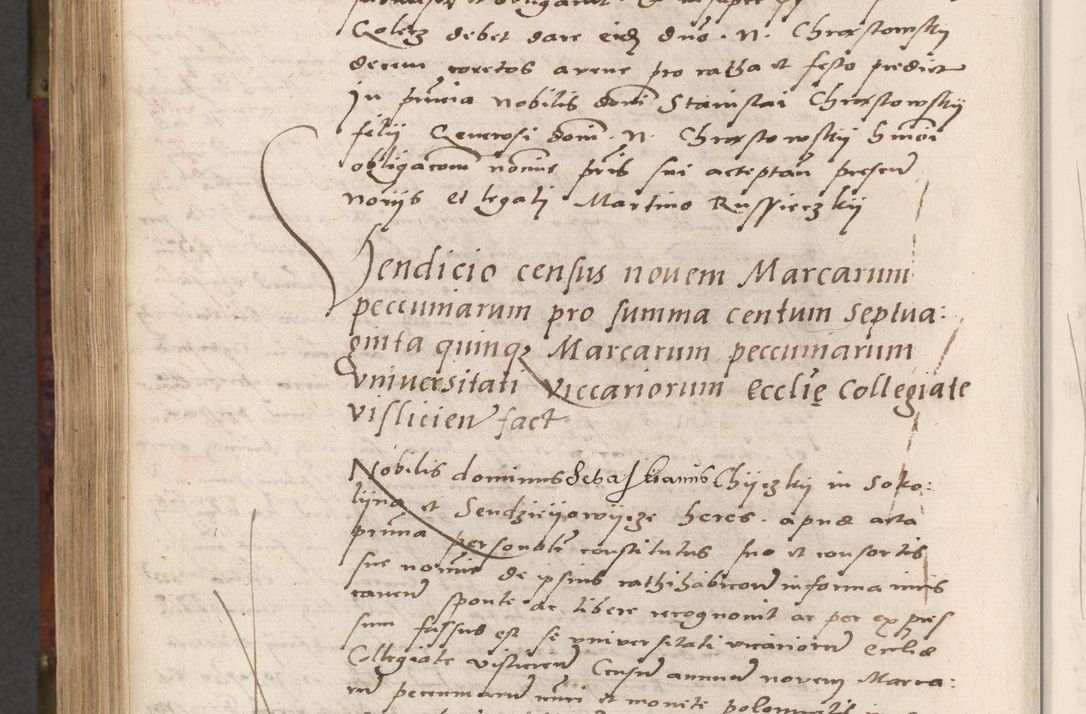 Golecz debet dare eidem dno. N. Chrzstowsky
decem coretos avene pro ratha et festo predict
In pñcia nobilis domi Stanislai Chrzstowsky
filij Generosi domi. N. Chrzstowskij hmoi
obligacom nomine pris sui acceptan presen
norijs et legali Martino Russieczkij
Vendicio census novem Marcarum
peccuniarum pro summa centum septua:
ginta quinq Marcarum peccuniarum
vniversitati viccariorum Ecclię Collegiate
visliciens fact
Nobilis dominus Sebastianus Chyczky in Soko:
lyna et Sendziejowijcze heres. apud acta
prima personali constitutus suo et consortis
sue nomine de ipsius rathihabicone in forma iuris
caven sponte ac libere recognovit ac per expres
sum fassus est se universitati vicariorum ecclie
Collegiate visliciens Censum annuum novem Marca:
rum peccuniarum nuri et monete polonicalis